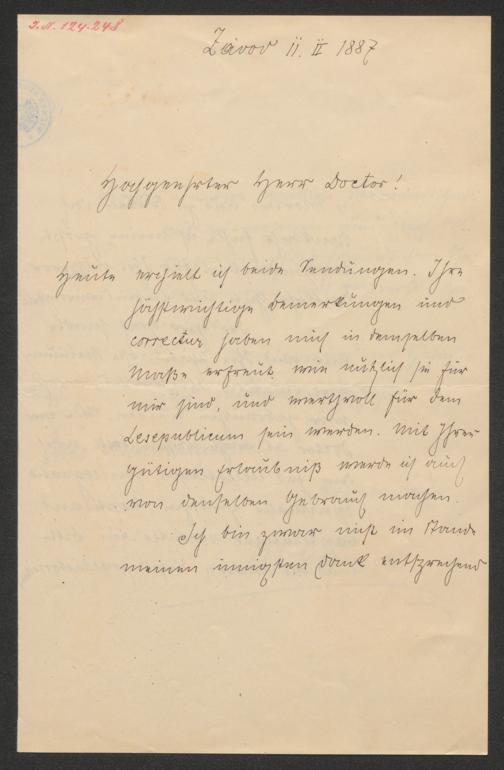 J.N. 124.248
Závod 11. II 1887
Hochgeehrter Herr Doctor!
Heute erhielt ich beide Sendungen. Ihre
höchstwichtige Bemerkungen und
correctur haben mich in demselben
Maße erfreut, wie nützlich sie für
mir sind, und werthvoll für dem
Lesepublicum sein werden. Mit Ihrer
gütigen Erlaubniß werde ich auch
von denselben Gebrauch machen.
Ich bin zwar nicht im Stande
meinen innigsten Dank entsprechend